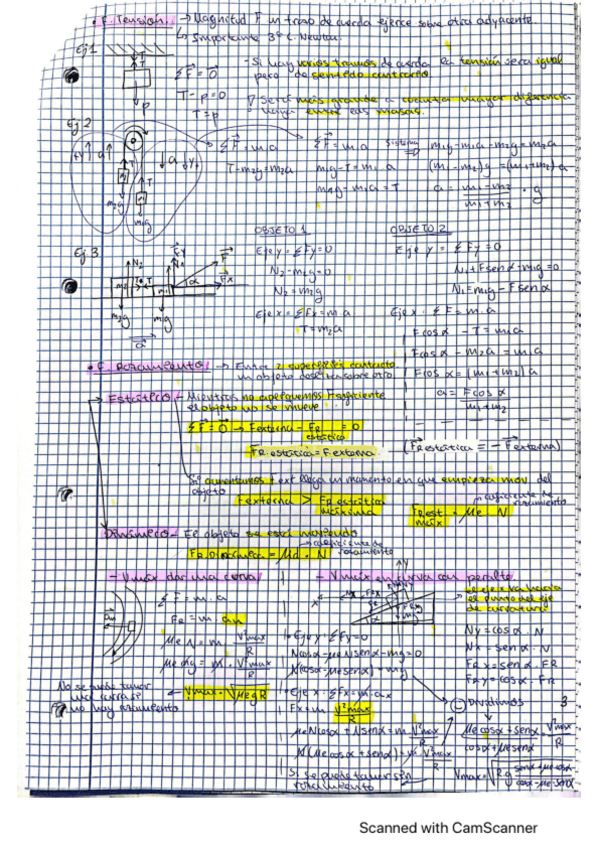 • F. Tensión → Magnitud F un trozo de cuerda ejerce sobre otra adyacente.
↳ Importante 3ª L. Newton
Ej 1
ΣF = 0
T - p = 0
T = p
- Si hay varios tramos de cuerda la tensión será igual
pero de sentido contrario
Será más grande a cuanta mayor diferencia
haya entre las masas.
Ej 2
ΣF = m.a
T - m₂g = m₂a
ΣF = m.a
m₁g - T = m₁ a
m₁g - m₁a = T
Sistema
m₁g - m₁a - m₂g = m₂a
(m₁ - m₂)g = (m₁+m₂) a
a = m₁ - m₂ / m₁ + m₂ · g
Ej 3
OBJETO 1
Eje y = ΣFy = 0
N₂ - m₂g = 0
N₂ = m₂g
Eje x = ΣFx = m.a
T = m₂a
OBJETO 2
Eje y = ΣFy = 0
N₁ + F senα - m₁g = 0
N₁ = m₁g - F senα
Eje x = ΣF = m.a
F cosα - T = m₁a
F cosα - m₂a = m₁.a
F cosα = (m₁+m₂) a
a = F cosα / m₁+m₂
• F. Rozamiento → Entre 2 superficies contacto
un objeto desliza sobre otro
Estático - Mientras no apliquemos F suficiente
el objeto no se mueve
ΣF = 0 → F externa - FR estática = 0
FR estática = F externa
(FR estática = - F externa)
Si aumentamos F ext llega un momento en que empieza mov. del
objeto
F externa > FR estática máxima
coeficiente de rozamiento
FR est máx = μe · N
Dinámico - El objeto se está moviendo
coeficiente de rozamiento
FR Dinámica = μd · N
- Vmáx dar una curva
ΣF = m.a
FR = m · an
μe N = m · V²máx / R
μe mg = m · V²máx / R
Vmáx = √μe g R
No se puede tomar
una curva si
no hay rozamiento
- Vmáx en curva con peralte
el eje x va hacia
el punto del eje
de curvatura
Ny = cosα · N
Nx = senα · N
FRx = senα · FR
FRy = cosα · FR
Eje y = ΣFy = 0
N cosα - μe N senα - mg = 0
N(cosα - μe senα) = mg
Eje x = ΣFx = m.ax
Fx = m V²máx / R
μe N cosα + N senα = m · V²máx / R
N(μe cosα + senα) = m V²máx / R
Si se puede tomar sin
rozamiento
Dividimos
3
μe cosα + senα / cosα - μe senα = V²máx / R
Vmáx = √Rg senα + μe cosα / cosα - μe senα
Scanned with CamScanner